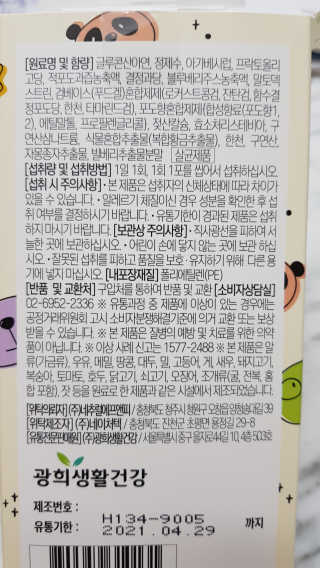 [원료명 및 함량] 글루콘산아연, 정제수, 아가베시럽, 프락토올리
고당, 적포도과즙농축액, 결정과당, 블루베리주스농축액, 말토덱
스트린, 겔베이스(푸드겔)혼합제제(로커스트콩검, 잔탄검, 함수결
정포도당, 한천, 타마린드검), 포도향혼합제제(합성향료(포도향1,
2), 에틸알콜, 프로필렌글리콜), 젖산칼슘, 효소처리스테비아, 구
연산삼나트륨, 식물혼합추출물(복합황금추출물), 한천, 구연산,
자몽종자추출물, 빌베리추출물분말 [살균제품]
[섭취량 및 섭취방법] 1일 1회, 1회 1포를 씹어서 섭취하십시오.
[섭취 시 주의사항] · 본 제품은 섭취자의 신체상태에 따라 차이가
있을 수 있습니다. · 알레르기 체질이신 경우 성분을 확인한 후 섭
취 여부를 결정하시기 바랍니다. · 유통기한이 경과된 제품은 섭취
하지 마시기 바랍니다. [보관상 주의사항] · 직사광선을 피하여 서
늘한 곳에 보관하십시오. · 어린이 손에 닿지 않는 곳에 보관 하십
시오. · 잘못된 섭취를 피하고 품질을 보호·유지하기 위해 다른 용
기에 넣지 마십시오. [내포장재질] 폴리에틸렌(PE)
[반품 및 교환처] 구입처를 통하여 반품 및 교환 [소비자상담실]
02-6952-2336 ※ 유통과정 중 제품에 이상이 있는 경우에는
공정거래위원회 고시 소비자분쟁해결기준에 의거 교환 또는 보상
받을 수 있습니다. ※ 본 제품은 질병의 예방 및 치료를 위한 의약
품이 아닙니다. ※ 이상 사례 신고는 1577-2488 ※ 본 제품은 알
류(가금류), 우유, 메밀, 땅콩, 대두, 밀, 고등어, 게, 새우, 돼지고기,
복숭아, 토마토, 호두, 닭고기, 쇠고기, 오징어, 조개류(굴, 전복, 홍
합 포함), 잣 등을 원료로 한 제품과 같은 시설에서 제조되었습니다.
[위탁의뢰자] (주)네추럴에프앤피 / 충청북도 청주시 청원구 오창읍 양청송대길 39
[위탁제조자] (주)네이처텍 / 충청북도 진천군 초평면 용정길 29-8
[유통전문판매원] (주)광희생활건강 / 서울특별시 중구 을지로44길 10, 4층 503호
광희생활건강
제조번호 :
유통기한 :
H134-9005
2021.04.29
까지